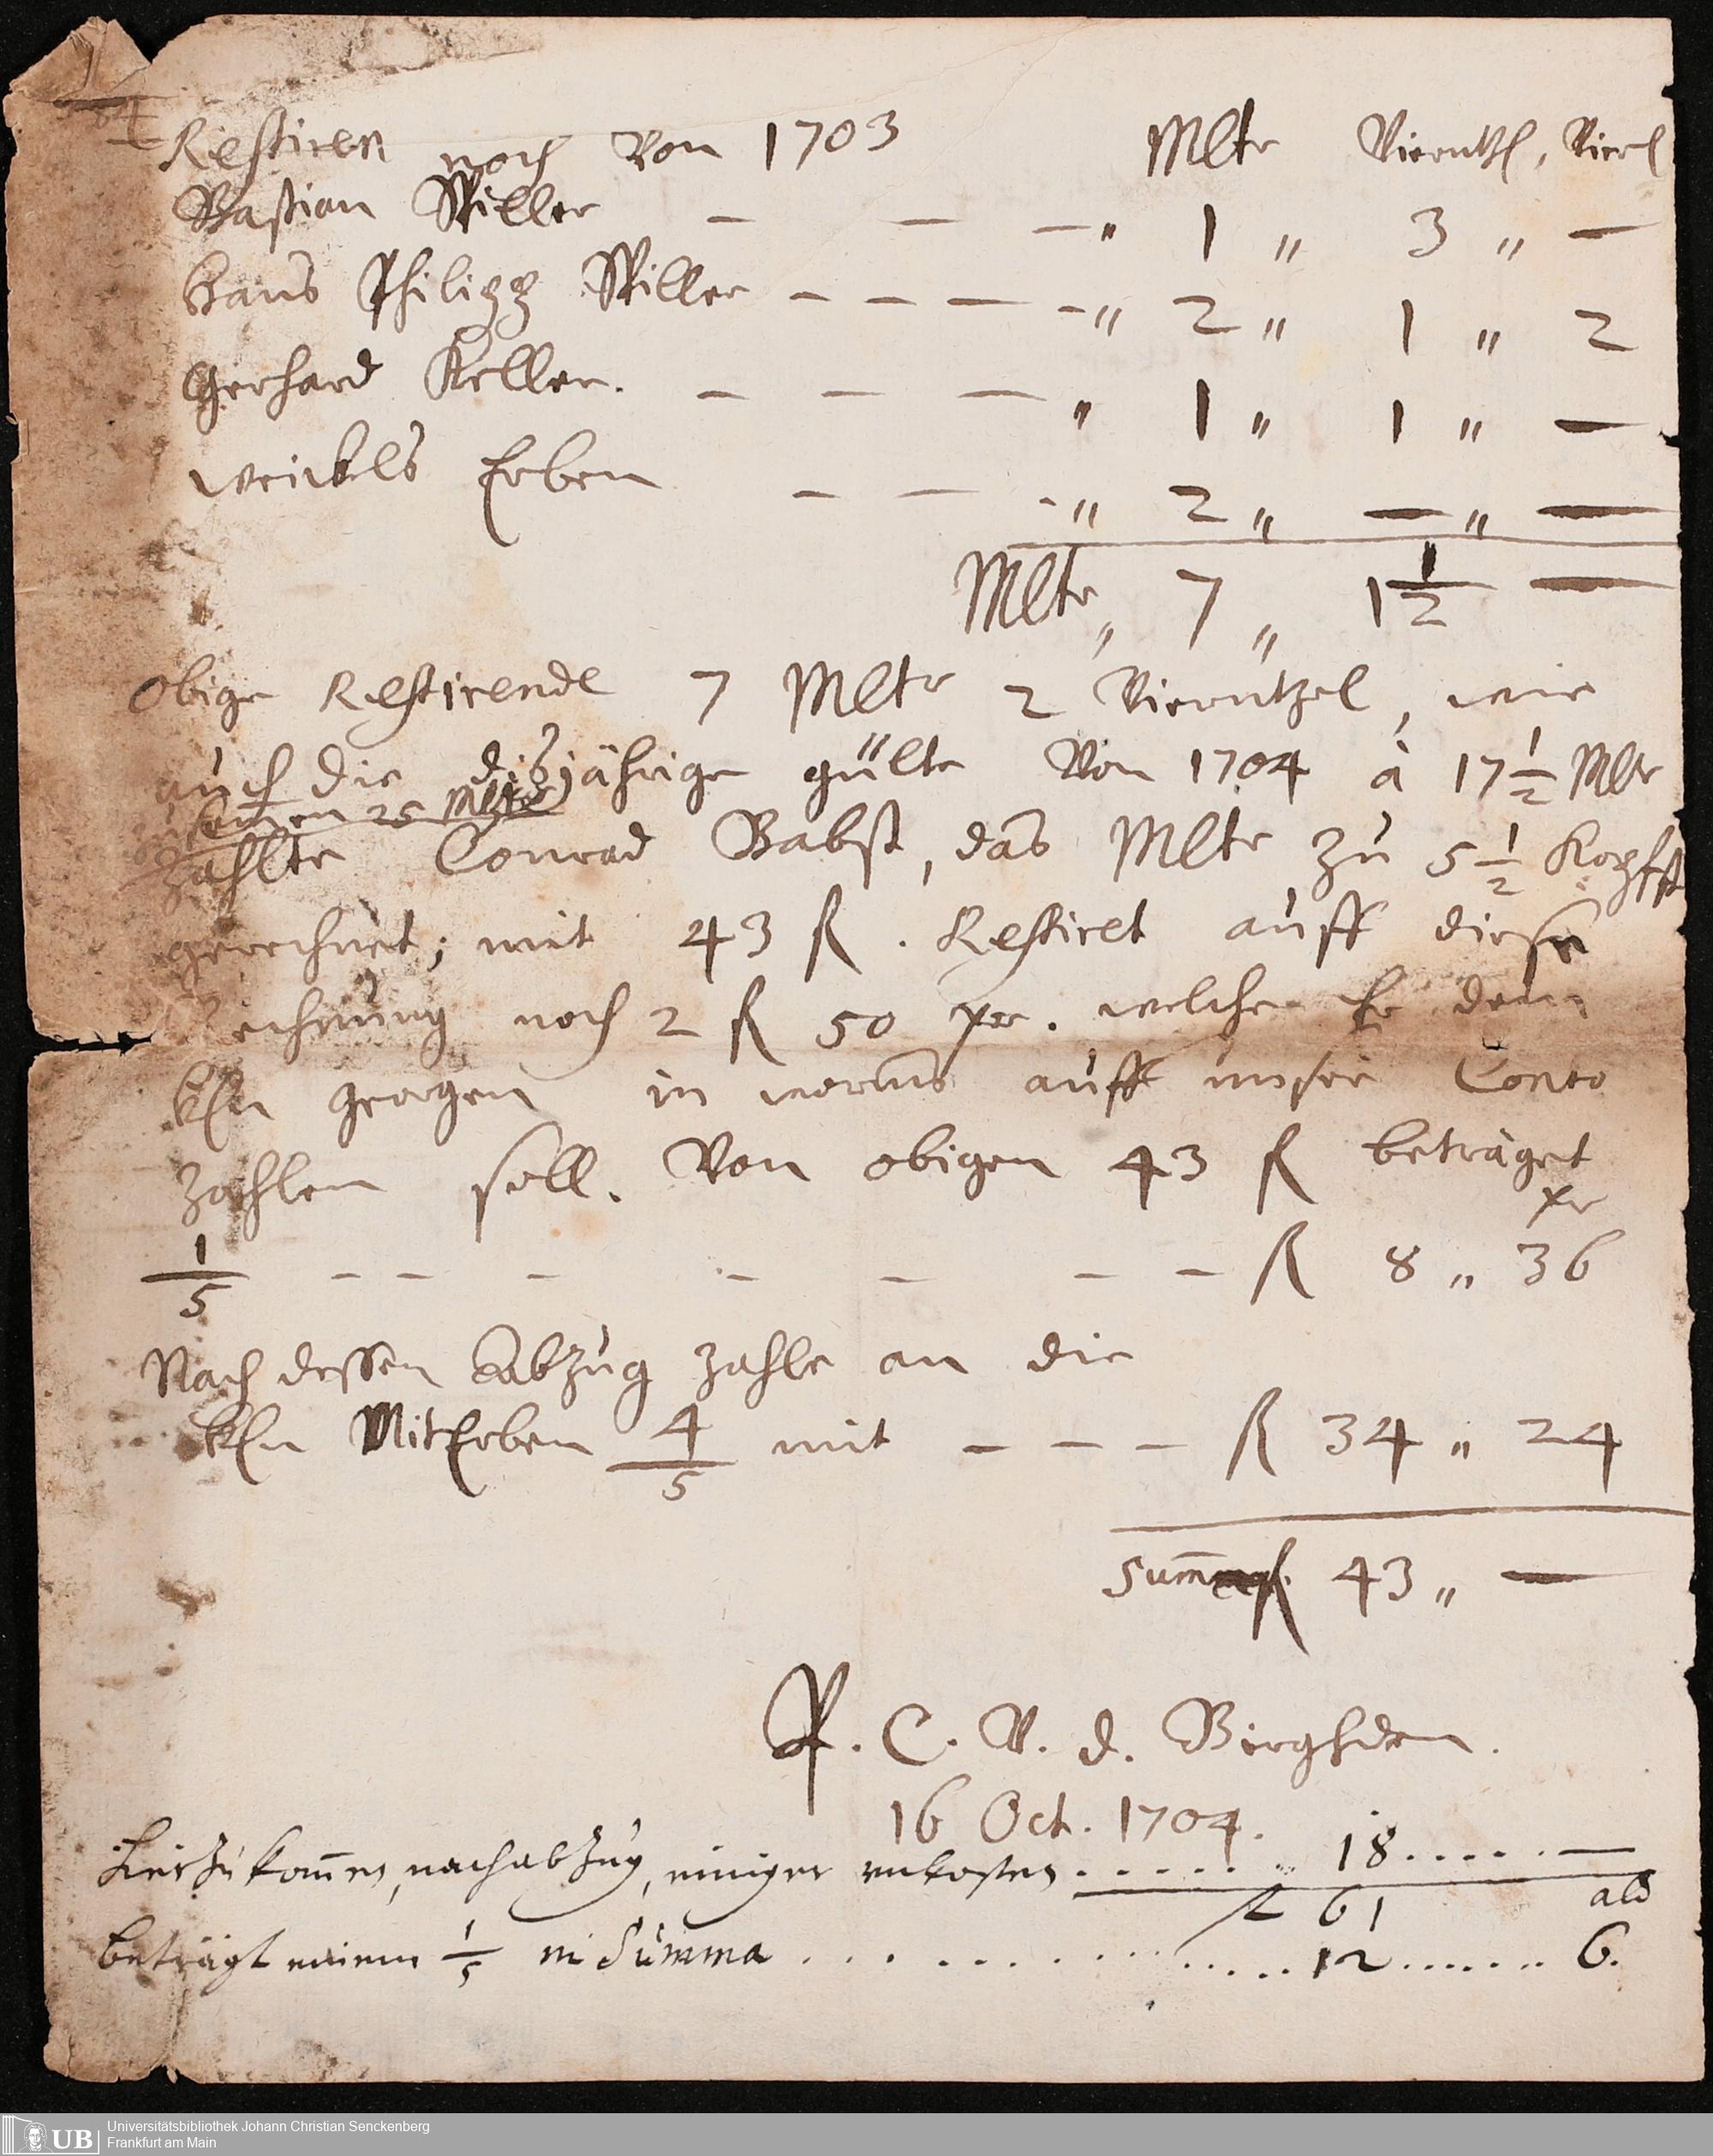 Restiren noch Von 1703 Mltr Viernthl, Vierl
Bastian Stiller — — — „ 1 „ 3 „ —
Hans Philipp Stiller — — — — „ 2 „ 1 „ 2
Gerhard Keller. — — — „ 1 „ 1 „ —
Weickels Erben — — - „ 2 „ — „ —
Mltr „ 7 „ 1 1/2 —
Obige Restirende 7 Mltr 2 Viernthzel, wie
auch die dißjährige gülte Von 1704 à 17 1/2 Mltr
zusamen 25 Mltr
zahlte Conrad Babst, das Mltr zu 5 1/2 Kopfst
gerechnet; mit 43 fl. Restiret auff diese
Rechnung noch 2 fl 50 xer. welche Er dem
HEn Georgen in worms auff unser Conto
zahlen soll. Von obigen 43 fl beträget
xer
1/5 — — — — — — — fl 8 „ 36
Nach dessen Abzug zahle an die
HEn MitErben 4/5 mit — — — fl 34 „ 24
Summa fl 43 „ —
P. C. V. d. Birghden.
16 Oct. 1704.
Hierzu komen, nach abzug, einiger unkosten . . . . . . 18 . . . . . —
fl 61 alb
beträgt meinem 1/5 in Summa . . . . . . . . . . . . 12 . . . . . . 6.
Universitätsbibliothek Johann Christian Senckenberg
UB Frankfurt am Main